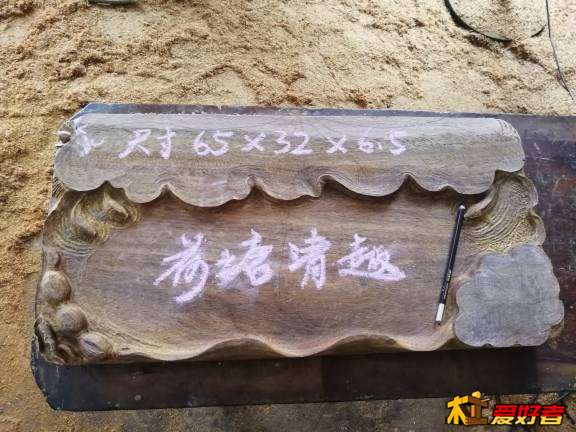 尺寸65×32×6.5
荷塘清趣
杠爱好者